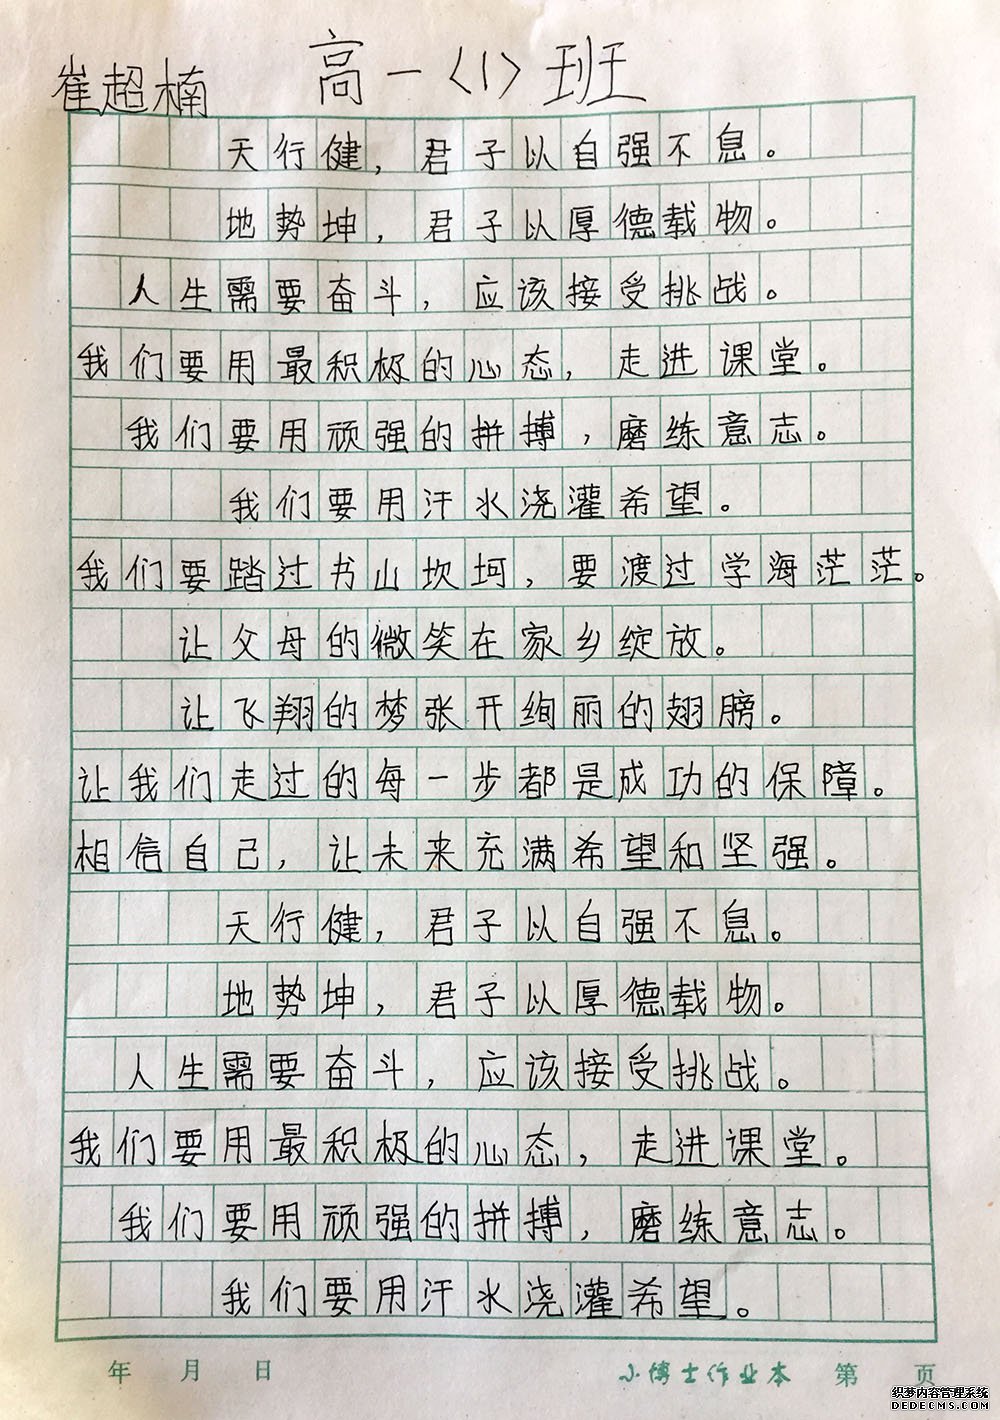 崔超楠 高一〈1〉班
天行健，君子以自强不息。
地势坤，君子以厚德载物。
人生需要奋斗，应该接受挑战。
我们要用最积极的心态，走进课堂。
我们要用顽强的拼搏，磨练意志。
我们要用汗水浇灌希望。
我们要踏过书山坎坷，要渡过学海茫茫。
让父母的微笑在家乡绽放。
让飞翔的梦张开绚丽的翅膀。
让我们走过的每一步都是成功的保障。
相信自己，让未来充满希望和坚强。
天行健，君子以自强不息。
地势坤，君子以厚德载物。
人生需要奋斗，应该接受挑战。
我们要用最积极的心态，走进课堂。
我们要用顽强的拼搏，磨练意志。
我们要用汗水浇灌希望。
年 月 日 小博士作业本 第 页
织梦内容管理系统
DEDECMS.COM